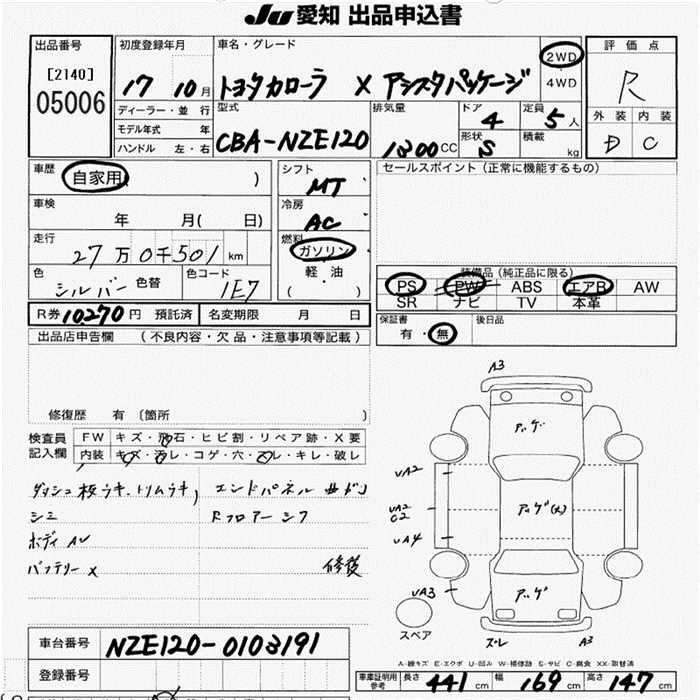 JU 愛知 出品申込書
出品番号
[2140]
05006
初度登録年月
17 10月
ディーラー・並行
モデル年式 年
ハンドル 左・右
車名・グレード
トヨタカローラ X アシスタパッケージ
2WD
4WD
型式
CBA-NZE120
排気量
1800CC
ドア
4
形状
S
定員
5人
積載
kg
評価点
R
外装 内装
D C
車歴
自家用( )
車検
年 月( 日)
走行
27万0千501km
色
シルバー
色替
色コード
1E7
シフト
MT
冷房
AC
燃料
ガソリン
軽・油
( ・ )
セールスポイント(正常に機能するもの)
装備品(純正品に限る)
PS PW ABS エアB AW
SR ナビ TV 本革
R券 10,270円 預託済 名変期限 月 日
保証書
有・無
後日品
出品店申告欄 (不良内容・欠品・注意事項等記載)
修復歴 有〔箇所 〕
検査員
記入欄
FW キズ・飛石・ヒビ割・リペア跡・X要
内装 キズ・汚レ・コゲ・穴・ズレ・キレ・破レ
ダッシュ板ラキ、トリムラキ, エンドパネル曲がり
シミ Rフロアーシワ
ボディAU
バッテリーX 修復
A3
アゲ
UA2
UA2
C2
アゲ(大)
UA4
UA3
アッゲ
スペア
ズレ
A3
A-線キズ E-エクボ U-凹み W-補修跡 S-サビ C-腐食 XX-取替済
車台番号
NZE120-0103191
登録番号
車庫証明用
参考
長さ 441cm 幅 169cm 高さ 147cm